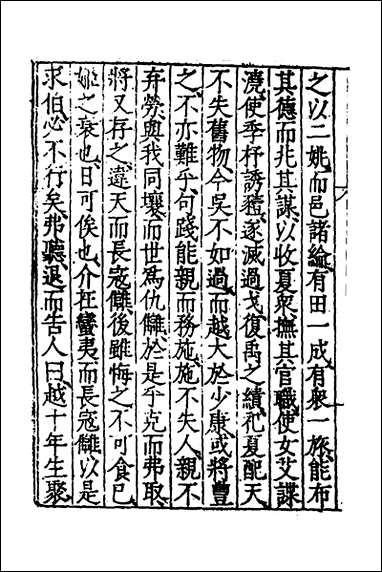 之以二姚而邑諸綸有田一成有衆一旅能布
其德而兆其謀以收夏衆撫其官職使女艾諜
澆使季杼誘豷遂滅過戈復禹之績祀夏配天
不失舊物今吳不如過而越大於少康或將豐
之不亦難乎句踐能親而務施施不失人親不
弃勞與我同壤而世爲仇讎於是乎克而弗取
將又存之違天而長寇讎後雖悔之不可食已
姬之衰也日可俟也介在蠻夷而長寇讎以是
求伯必不行矣弗聽退而告人曰越十年生聚